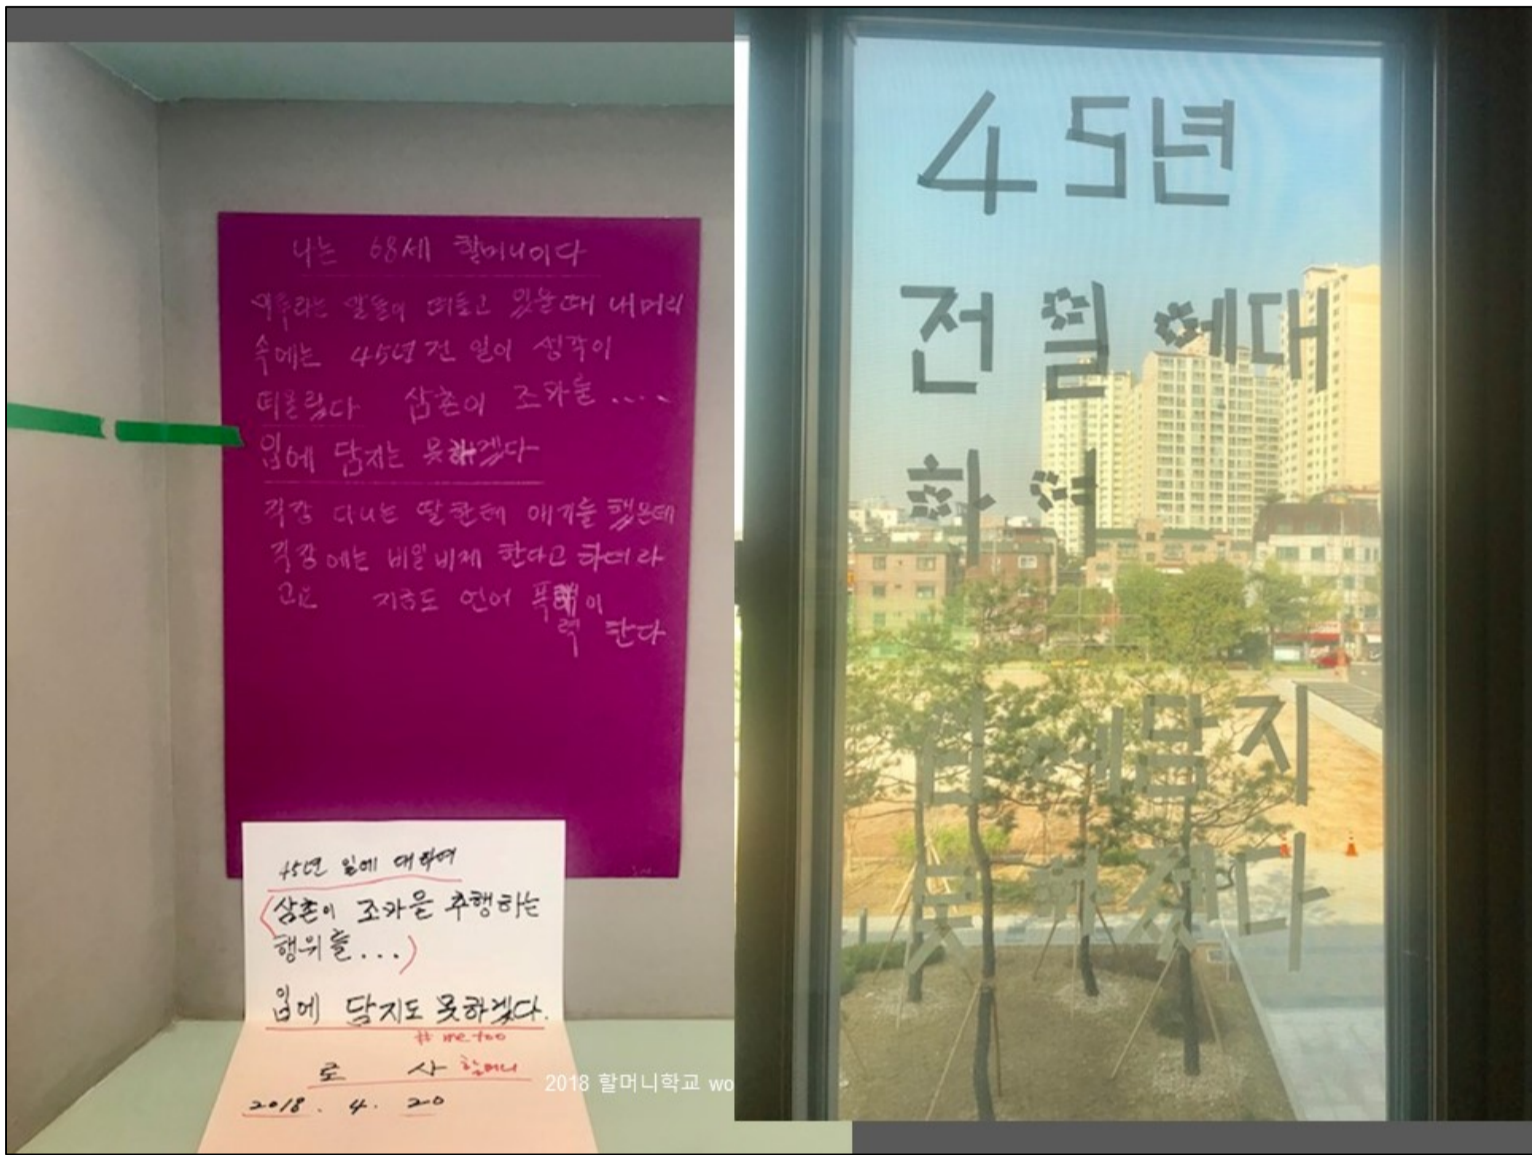 나는 68세 할머니이다
말들이 떠돌고 있는데 내머리
속에는 45년전 일이 생각이
떠올랐다 삼촌이 조카를....
입에 담지는 못하겠다
직장 다니는 딸한테 얘기를 했는데
직장에는 비일비재 한다고 하더라
지금도 언어 폭력이
한다
45년 일에 대하여
(삼촌이 조카을 추행하는
행위를...)
입에 담지도 못하겠다.
#me too
로 사 할머니
2018. 4. 20
2018 할머니학교 wo
45년
전 일에대
하여
입에담지
못하겠다